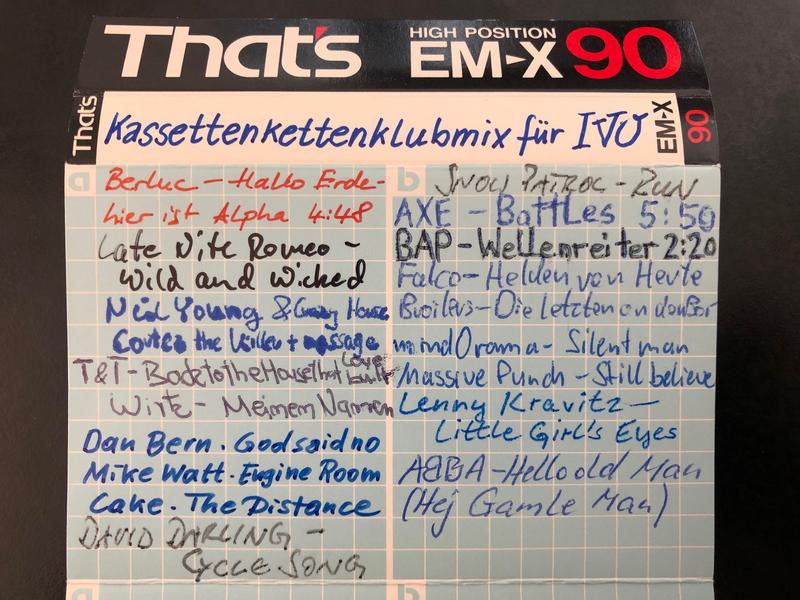 That's
HIGH POSITION
EM-X 90
That's
Kassettenkettenklubmix für IVO
EM-X
90
a
Berluc - Hallo Erde-
hier ist Alpha 4:48
Late Nite Romeo -
Wild and Wicked
Neil Young & Crazy House
Cortez the Killer + message
T&T - Back to the House that Love built
Wirtz - Meinen Namen
Dan Bern. God said no
Mike Watt. Engine Room
Cake. The Distance
DAVID DARLING -
CYCLE SONG
b
SNOW PATROL - RUN
AXE - Battles 5:59
BAP - Wellenreiter 2:20
Falco - Helden von Heute
Broilers - Die Letzten an der Bar
mind Orama - Silent man
Massive Punch - Still believe
Lenny Kravitz -
Little Girl's Eyes
ABBA - Hello old Man
(Hej Gamle Man)
a
b